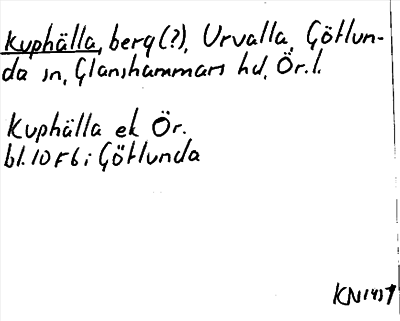 Kuphälla, berg (?), Urvalla, Götlun-
da sn, Glanshammars hd, Ör. l.
Kuphälla ek Ör.
bl. 10 F 6 i Götlunda